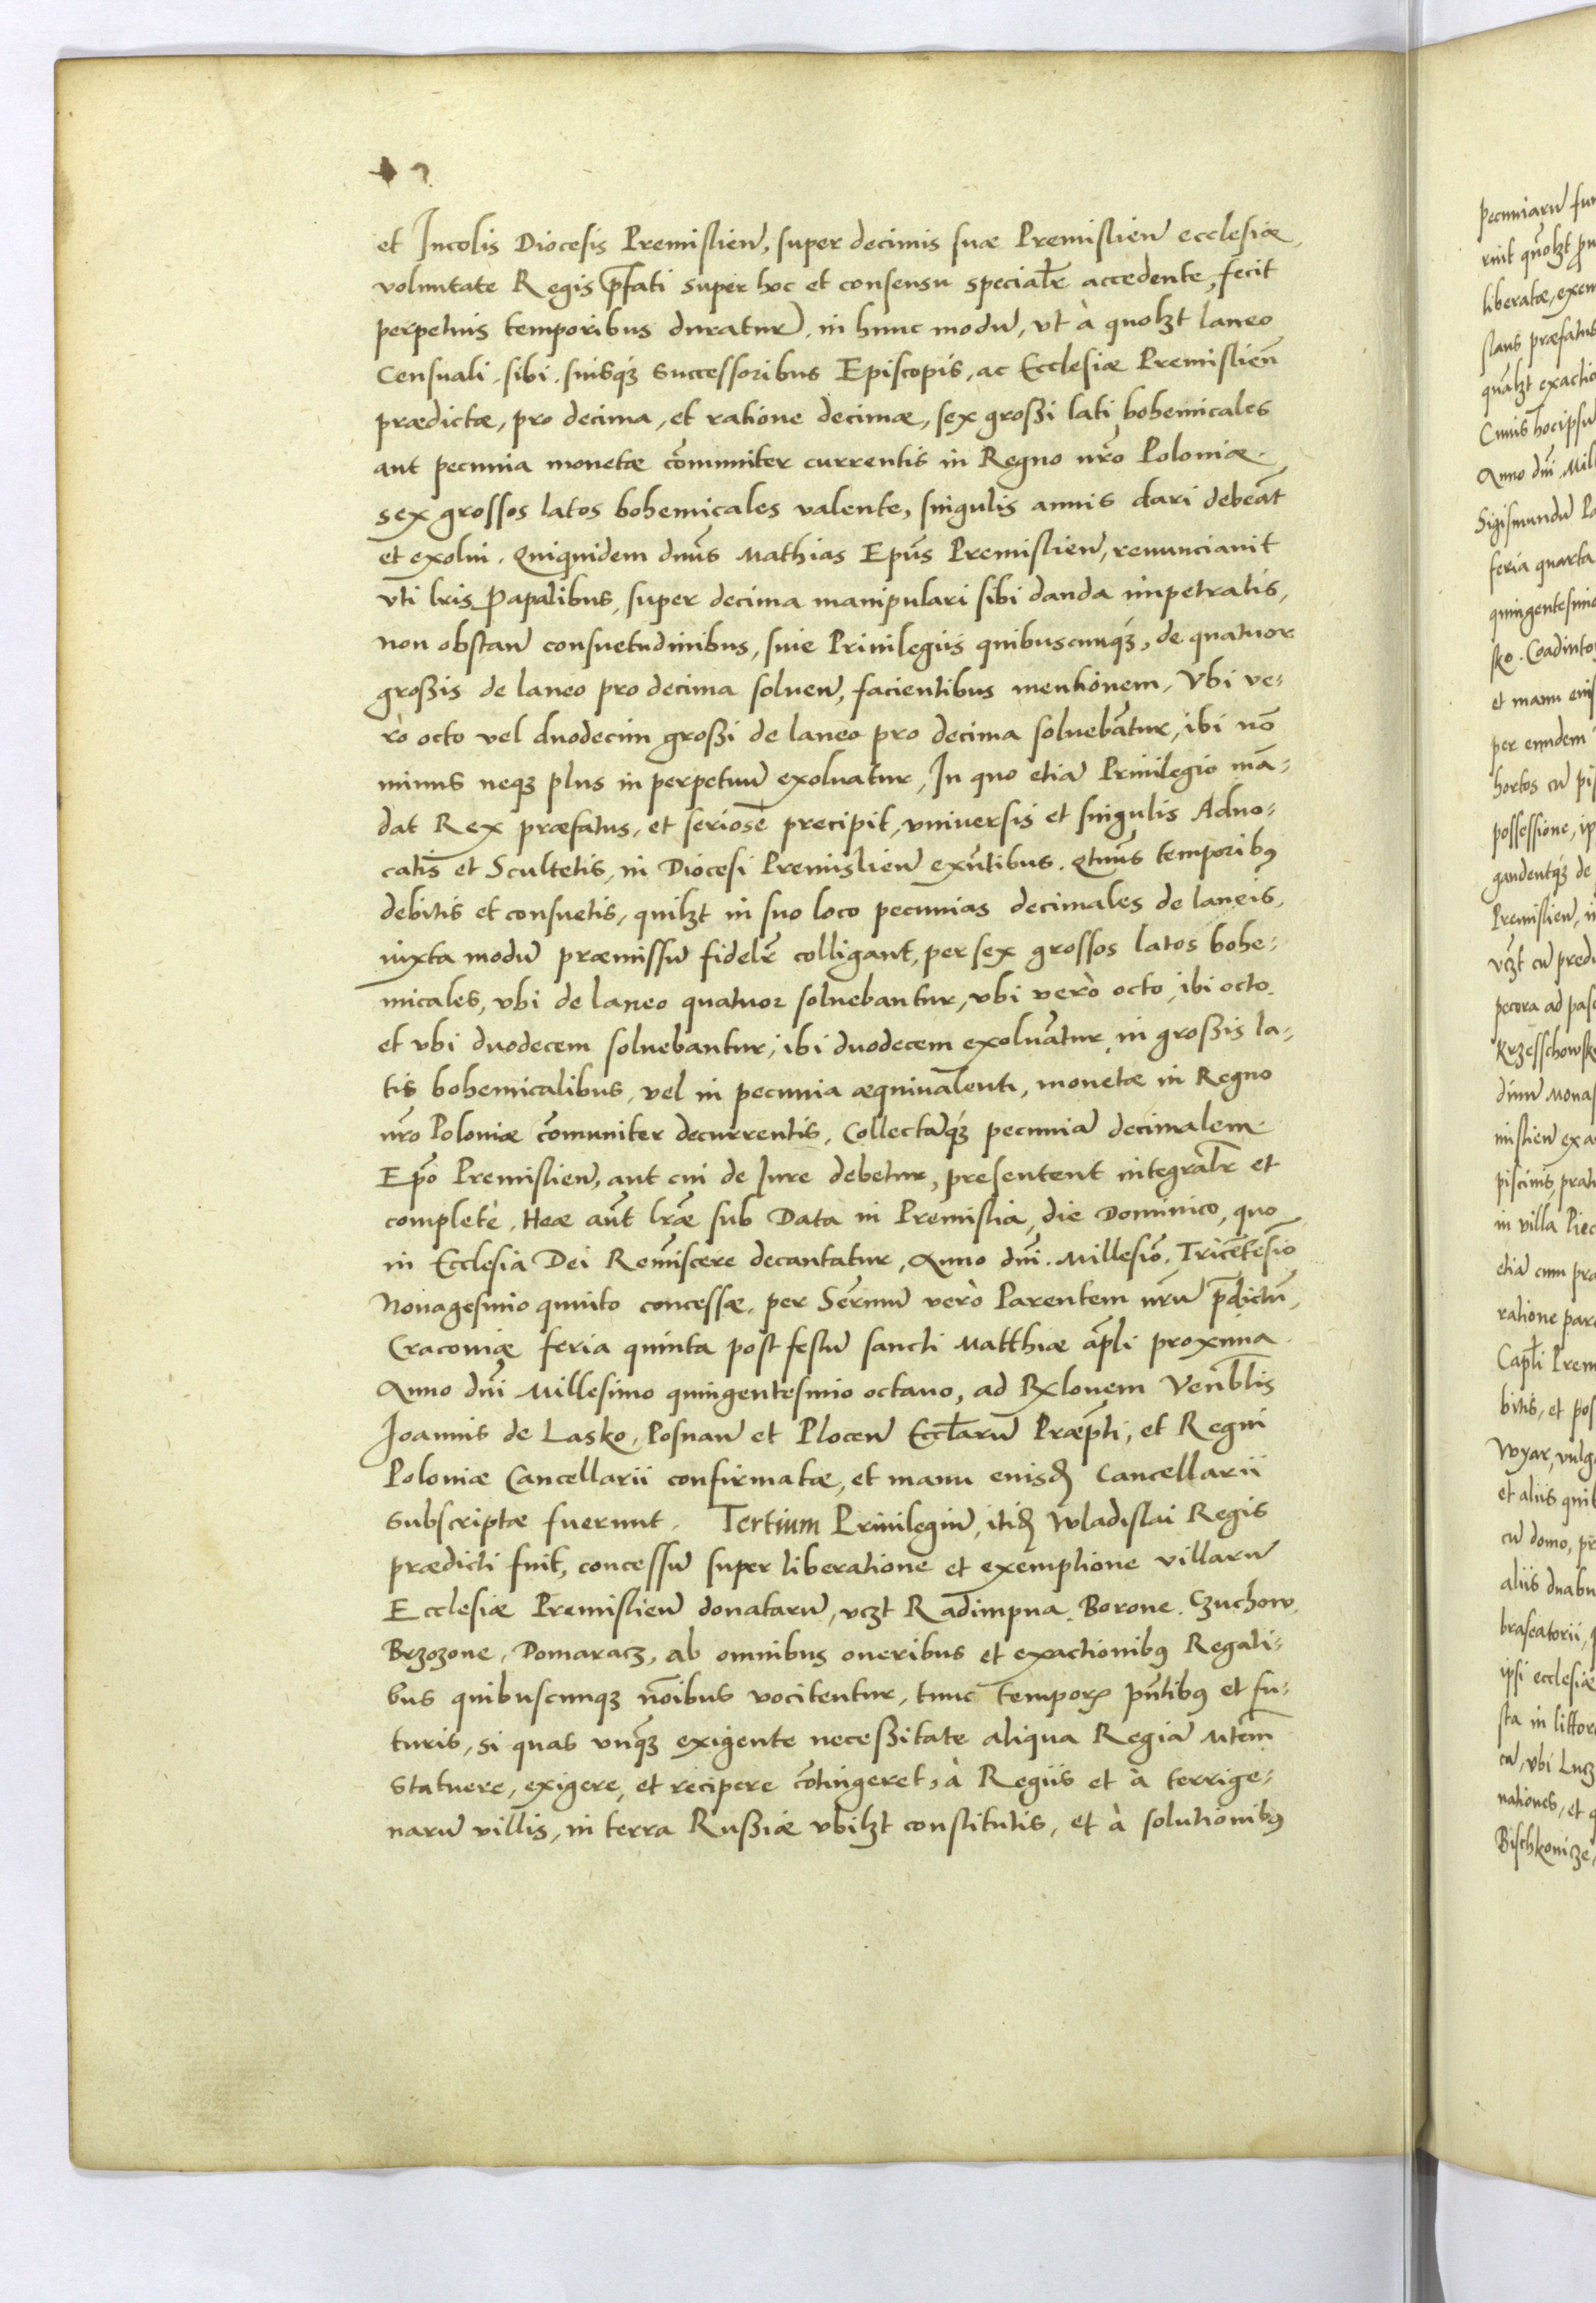 et Incolis Diocesis Premislieñ, super decimis suæ Premislieñ ecclesiæ,
voluntate Regis p̄fati super hoc et consensu specialr̄ accedente, fecit
perpetuis temporibus duratur), in hunc modū, vt à quolʒt laneo
Censuali, sibi, suisqʒ successoribus Episcopis, ac Ecclesiæ Premislieñ
prædictæ, pro decima, et ratione decimæ, sex großi lati bohemicales
aut pecunia monetæ cōmuniter currentis in Regno nr̄o Poloniæ.
sex grossos latos bohemicales valente, singulis annis dari debeāt
et exolui. Quiquidem dn̄us Mathias Epūs Premislieñ, renunciauit
vti lr̄is Papalibus, super decima manipulari sibi danda impetratis,
non obstañ consuetudinibus, siue Priuilegiis quibuscunqʒ, de quatuor
großis de laneo pro decima solueñ, facientibus mentionem, Vbi ve-
rò octo vel duodecim großi de laneo pro decima soluebātur, ibi nō
minus neqʒ plus in perpetuū exoluatur, In quo etiā Priuilegio mā-
dat Rex præfatus, et seriose precipit, vniuersis et singulis Aduo-
catis et Scultetis, in Diocesi Premislieñ exn̄tibus. Qtn̄us temporibꝰ
debitis et consuetis, quilʒt in suo loco pecunias decimales de laneis,
iuxta modū præmissū fidelr̄ colligant, per sex grossos latos bohe-
micales, vbi de laneo quatuor soluebantur, vbi verò octo, ibi octo,
et vbi duodecem soluebantur, ibi duodecem exoluātur, in großis la-
tis bohemicalibus, vel in pecunia æquiualenti, monetæ in Regno
nr̄o Poloniæ cōmuniter decurrentis, Collectāqʒ pecuniā decimalem
Ep̄o Premislieñ, aut cui de Iure debetur, presentent integralr̄ et
completè. Heæ aūt lr̄æ sub Data in Premislia, die Dominico, quo
in Ecclesia Dei Rem̄iscere decantatur, Anno dn̄i. Millesiō. Tricētesiō
Nonagesimo quinto concessæ, per Serm̄um verò Parentem nr̄um p̄dictū,
Cracouiæ feria quinta post festū sancti Matthiæ āpli proxima
Anno dn̄i Millesimo quingentesimo octauo, ad Rx̄lonem Venb̄lis
Ioannis de Lasko, Posnañ et Ploceñ Eccl̄iarū Præp̄ti, et Regni
Poloniæ Cancellarii confirmatæ, et manu euisd̄ Cancellarii
subscriptæ fuerunt. Tertium Priuilegiū, itid̄ Wladislai Regis
prædicti fuit, concessū super liberatione et exemptione villarū
Ecclesiæ Premislieñ donatarū, vczt Radimpna. Borone. Czuchow.
Brzozone, Domaracz, ab omnibus oneribus et exactionibꝰ Regali-
bus quibuscunqʒ nōibus vocitentur, tunc temporꝭ pn̄tibꝰ et fu-
turis, si quas vnqʒ exigente neceßitate aliqua Regiā Mtem̄
statuere, exigere, et recipere cōtingeret, à Regiis et à terrige-
narū villis, in terra Rußiæ vbilʒt constitutis, et à solutionibꝰ
pecuniarū
liberatæ,
stans præfatus
Anno dn̄i. Mil
Sigismundū
feria quarta
quingentesimo
et manu
per eundem
hortos cū
possessione,
Premislieñ,
pecora ad
in villa
etiā cum
ratione
bitis, et
Wyar, vulg
et aliis
cū domo,
aliis
ipsi ecclesiæ
sta in
nationes, et